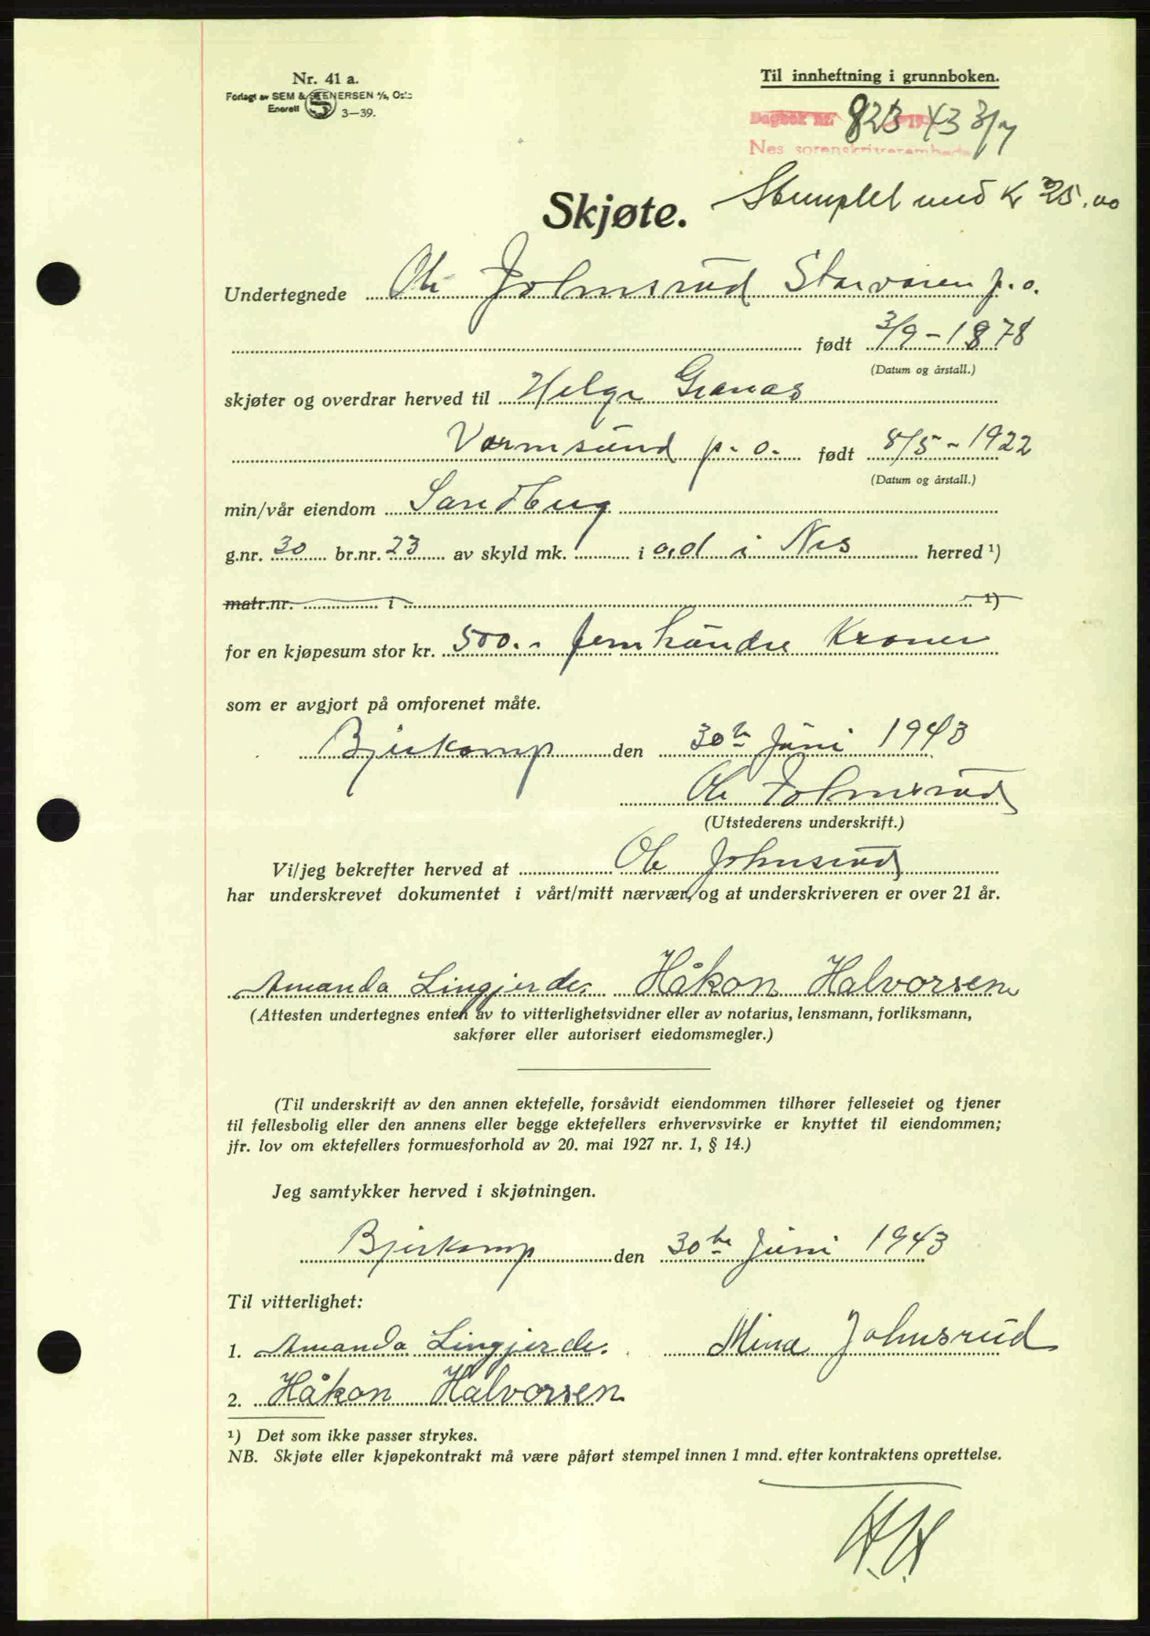 Nr. 41 a.
Forlagt av SEM & STENERSEN A/S, Oslo
Enerett
3—39.
Til innheftning i grunnboken.
Dagbok nr. 823 19 43 3/7
Nes sorenskriverembede
Skjøte. Stemplet med Kr 25.00
Undertegnede Ole Johnsrud Starvoren p.o.
født 3/9-1878
(Datum og årstall.)
skjøter og overdrar herved til Helge Granås
Vormsund p.o. født 8/5-1922
(Datum og årstall.)
min/vår eiendom Sandberg
g.nr. 30 br.nr. 23 av skyld mk. i o,01 i Nes herred ¹)
matr.nr. i ¹)
for en kjøpesum stor kr. 500.- fem hundre Kroner
som er avgjort på omforenet måte.
Bjerkamp den 30te Juni 1943
Ole Johnsrud
(Utstederens underskrift.)
Vi/jeg bekrefter herved at Ole Johnsrud
har underskrevet dokumentet i vårt/mitt nærvær, og at underskriveren er over 21 år.
Amanda Lingjerde. Håkon Halvorsen
(Attesten undertegnes enten av to vitterlighetsvidner eller av notarius, lensmann, forliksmann,
sakfører eller autorisert eiedomsmegler.)
(Til underskrift av den annen ektefelle, forsåvidt eiendommen tilhører felleseiet og tjener
til fellesbolig eller den annens eller begge ektefellers erhvervsvirke er knyttet til eiendommen;
jfr. lov om ektefellers formuesforhold av 20. mai 1927 nr. 1, § 14.)
Jeg samtykker herved i skjøtningen.
Bjerkamp den 30te Juni 1943
Til vitterlighet:
1. Amanda Lingjerde. Mina Johnsrud
2. Håkon Halvorsen
¹) Det som ikke passer strykes.
NB. Skjøte eller kjøpekontrakt må være påført stempel innen 1 mnd. efter kontraktens oprettelse.
H.H